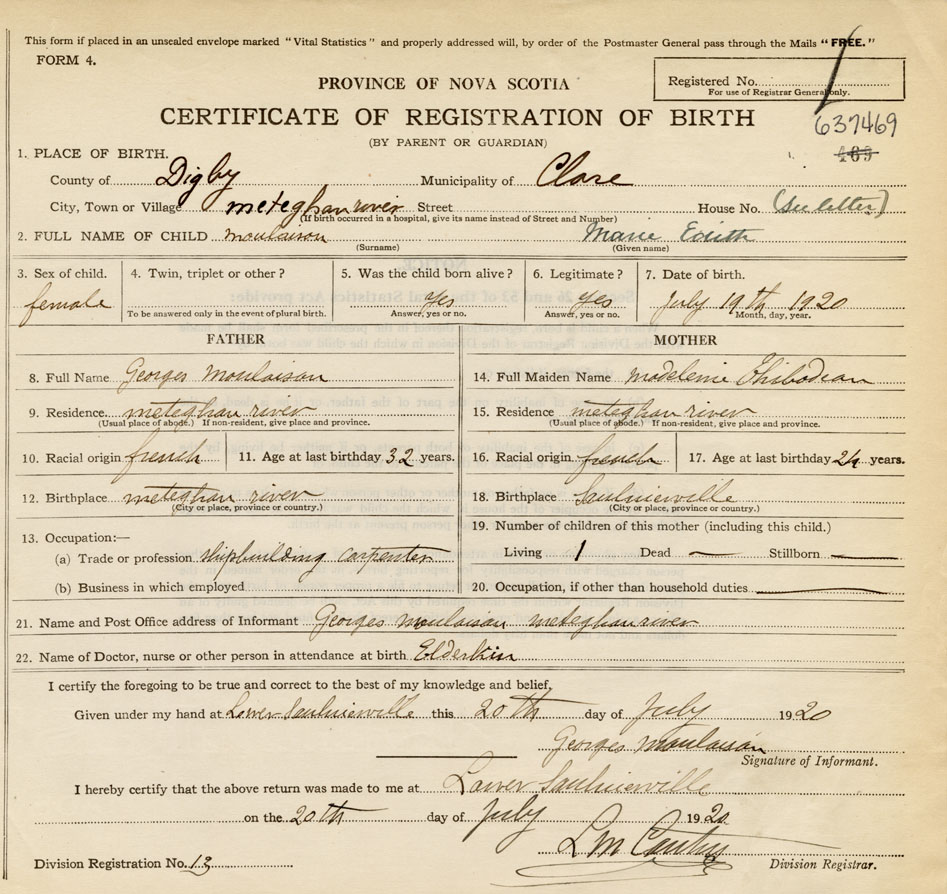 This form if placed in an unsealed envelope marked "Vital Statistics" and properly addressed will, by order of the Postmaster General pass through the Mails "FREE."
FORM 4.
PROVINCE OF NOVA SCOTIA
Registered No.
For use of Registrar General only.
CERTIFICATE OF REGISTRATION OF BIRTH
637469
(BY PARENT OR GUARDIAN)
469
1. PLACE OF BIRTH.
County of Digby Municipality of Clare
City, Town or Village meteghan river Street House No. (See letter)
(If birth occurred in a hospital, give its name instead of Street and Number)
2. FULL NAME OF CHILD moulaison Marie Edith
(Surname) (Given name)
3. Sex of child. 4. Twin, triplet or other? 5. Was the child born alive? 6. Legitimate? 7. Date of birth.
female Yes Yes July 19th 1920
To be answered only in the event of plural birth. Answer, yes or no. Answer, yes or no. Month, day, year.
FATHER MOTHER
8. Full Name Georges Moulaison 14. Full Maiden Name madeleine Thibodeau
9. Residence meteghan river 15. Residence meteghan river
(Usual place of abode.) If non-resident, give place and province. (Usual place of abode.) If non-resident, give place and province.
10. Racial origin french 11. Age at last birthday 32 years. 16. Racial origin french 17. Age at last birthday 24 years.
12. Birthplace meteghan river 18. Birthplace Saulnierville
(City or place, province or country.) (City or place, province or country.)
13. Occupation:— 19. Number of children of this mother (including this child.)
(a) Trade or profession shipbuilding carpenter Living 1 Dead — Stillborn —
(b) Business in which employed 20. Occupation, if other than household duties
21. Name and Post Office address of Informant Georges moulaison meteghan river
22. Name of Doctor, nurse or other person in attendance at birth Elderkin
I certify the foregoing to be true and correct to the best of my knowledge and belief.
Given under my hand at Lower Saulnierville this 20th day of July 1920
Georges Moulaison
Signature of Informant.
I hereby certify that the above return was made to me at Lower Saulnierville
on the 20th day of July 1920
L M
Division Registration No. 13 Division Registrar.